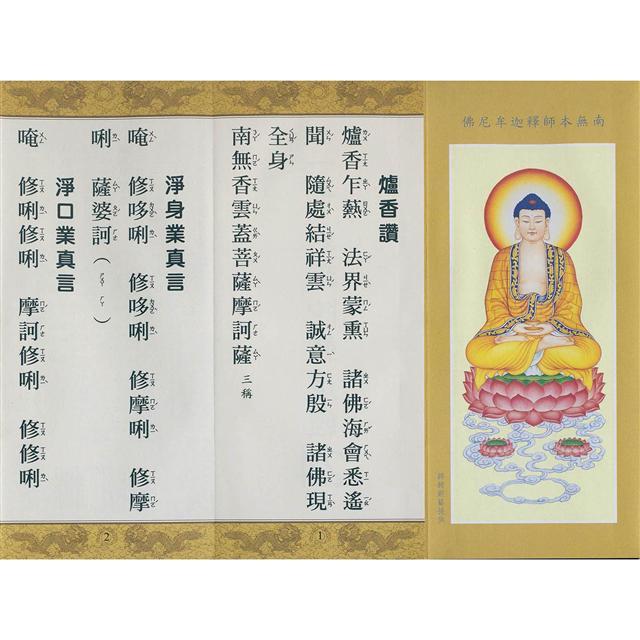 南無本師釋迦牟尼佛
爐香讚
爐香乍爇　法界蒙熏　諸佛海會悉遙
聞　隨處結祥雲　誠意方殷　諸佛現
全身
南無香雲蓋菩薩摩訶薩 三稱
1
淨身業真言
唵　修哆唎　修哆唎　修摩唎　修摩
唎　薩婆訶（ㄙㄚ ㄏㄚ）
淨口業真言
唵　修唎修唎　摩訶修唎　修修唎
2